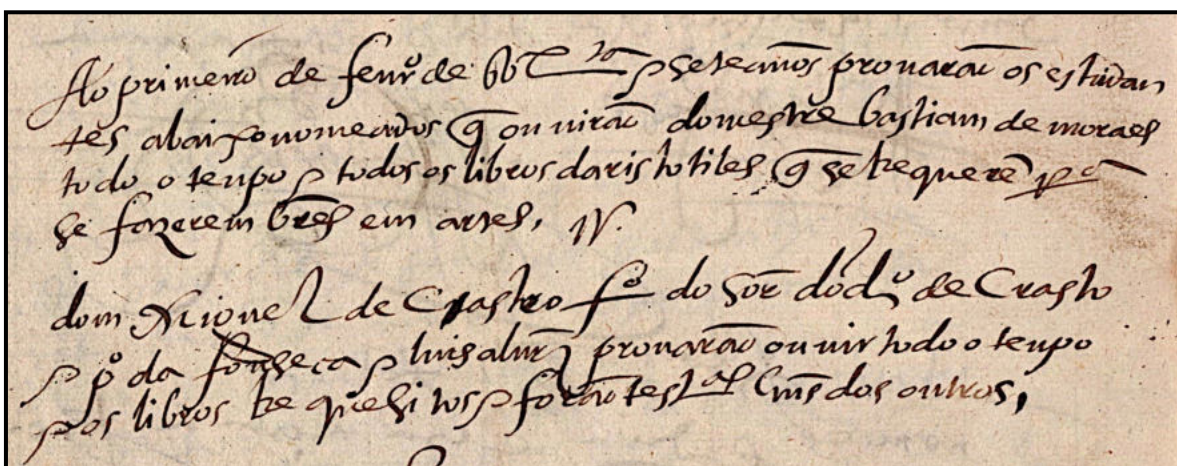 Ao primeiro de feurº de bᶜ Lᵗᵃ e sete años prouarão os estudan
tes abaixo nomeados q̃ ouuirão do mestre bastiam de moraes
todo o tenpo e todos os libros daristotiles q̃ se Requerẽ pª
se fazerem bres̃ em artes, s.
dom Miguel de Crasto fº do sõr dõ dº de Crasto
e pº da fonseca e luis aluȓz prouarão ouuir todo o tenpo
e os libros Requesitos e forão tesᵗᵃˢ hũs dos outros,